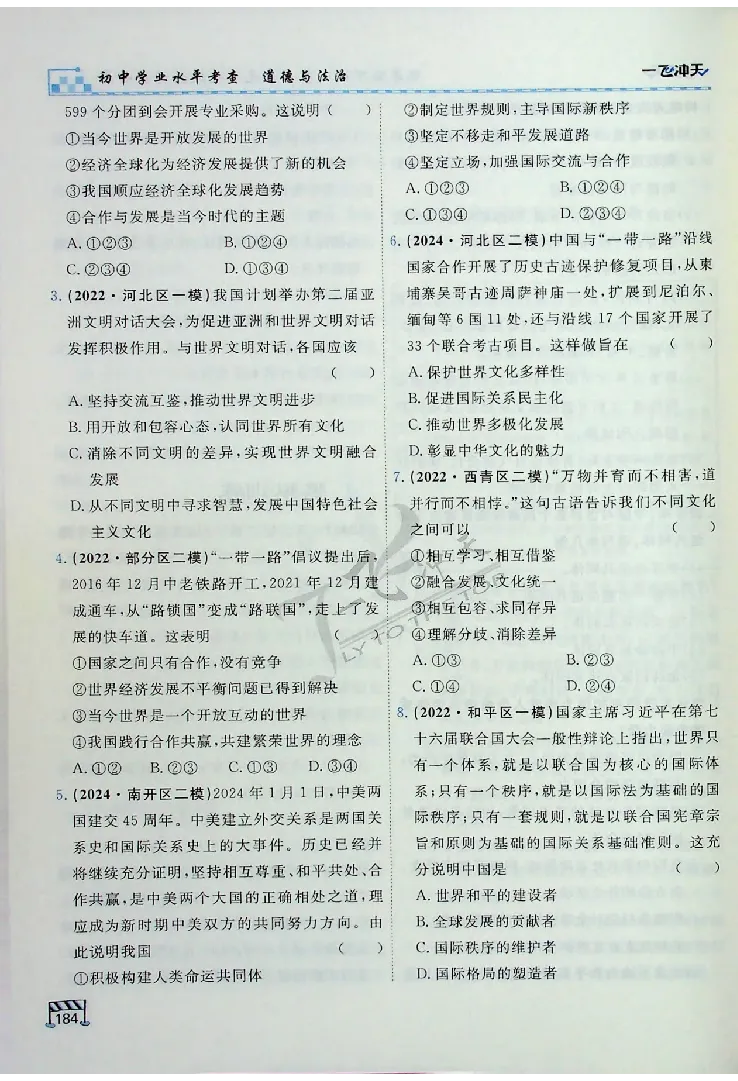 初中学业水平考查 道德与法治
一飞冲天
599 个分团到会开展专业采购。这说明（ ）
①当今世界是开放发展的世界
②经济全球化为经济发展提供了新的机会
③我国顺应经济全球化发展趋势
④合作与发展是当今时代的主题
A. ①②③ B. ①②④
C. ②③④ D. ①③④
3. (2022·河北区一模)我国计划举办第二届亚
洲文明对话大会,为促进亚洲和世界文明对话
发挥积极作用。与世界文明对话,各国应该
（ ）
A. 坚持交流互鉴,推动世界文明进步
B. 用开放和包容心态,认同世界所有文化
C. 消除不同文明的差异,实现世界文明融合
发展
D. 从不同文明中寻求智慧,发展中国特色社会
主义文化
4. (2022·部分区二模)“一带一路”倡议提出后,
2016 年 12 月中老铁路开工,2021 年 12 月建
成通车,从“陆锁国”变成“陆联国”,走上了发
展的快车道。这表明 （ ）
①国家之间只有合作,没有竞争
②世界经济发展不平衡问题已得到解决
③当今世界是一个开放互动的世界
④我国践行合作共赢,共建繁荣世界的理念
A. ①② B. ②③ C. ①③ D. ③④
5. (2024·南开区二模)2024 年 1 月 1 日,中美两
国建交 45 周年。中美建立外交关系是两国关
系史和国际关系史上的大事件。历史已经并
将继续充分证明,坚持相互尊重、和平共处、合
作共赢,是中美两个大国的正确相处之道,理
应成为新时期中美双方的共同努力方向。由
此说明我国 （ ）
①积极构建人类命运共同体
②制定世界规则,主导国际新秩序
③坚定不移走和平发展道路
④坚定立场,加强国际交流与合作
A. ①②③ B. ①②④
C. ①③④ D. ②③④
6. (2024·河北区二模)中国与“一带一路”沿线
国家合作开展了历史古迹保护修复项目,从柬
埔寨吴哥古迹周萨神庙一处,扩展到尼泊尔、
缅甸等 6 国 11 处,还与沿线 17 个国家开展了
33 个联合考古项目。这样做旨在 （ ）
A. 保护世界文化多样性
B. 促进国际关系民主化
C. 推动世界多极化发展
D. 彰显中华文化的魅力
7. (2022·西青区二模)“万物并育而不相害,道
并行而不相悖。”这句古语告诉我们不同文化
之间可以 （ ）
①相互学习、相互借鉴
②融合发展、文化统一
③相互包容、求同存异
④理解分歧、消除差异
A. ①③ B. ②③
C. ①④ D. ②④
8. (2022·和平区一模)国家主席习近平在第七
十六届联合国大会一般性辩论上指出,世界只
有一个体系,就是以联合国为核心的国际体
系;只有一个秩序,就是以国际法为基础的国
际秩序;只有一套规则,就是以联合国宪章宗
旨和原则为基础的国际关系基础准则。这充
分说明中国是 （ ）
A. 世界和平的建设者
B. 全球发展的贡献者
C. 国际秩序的维护者
D. 国际格局的塑造者
184